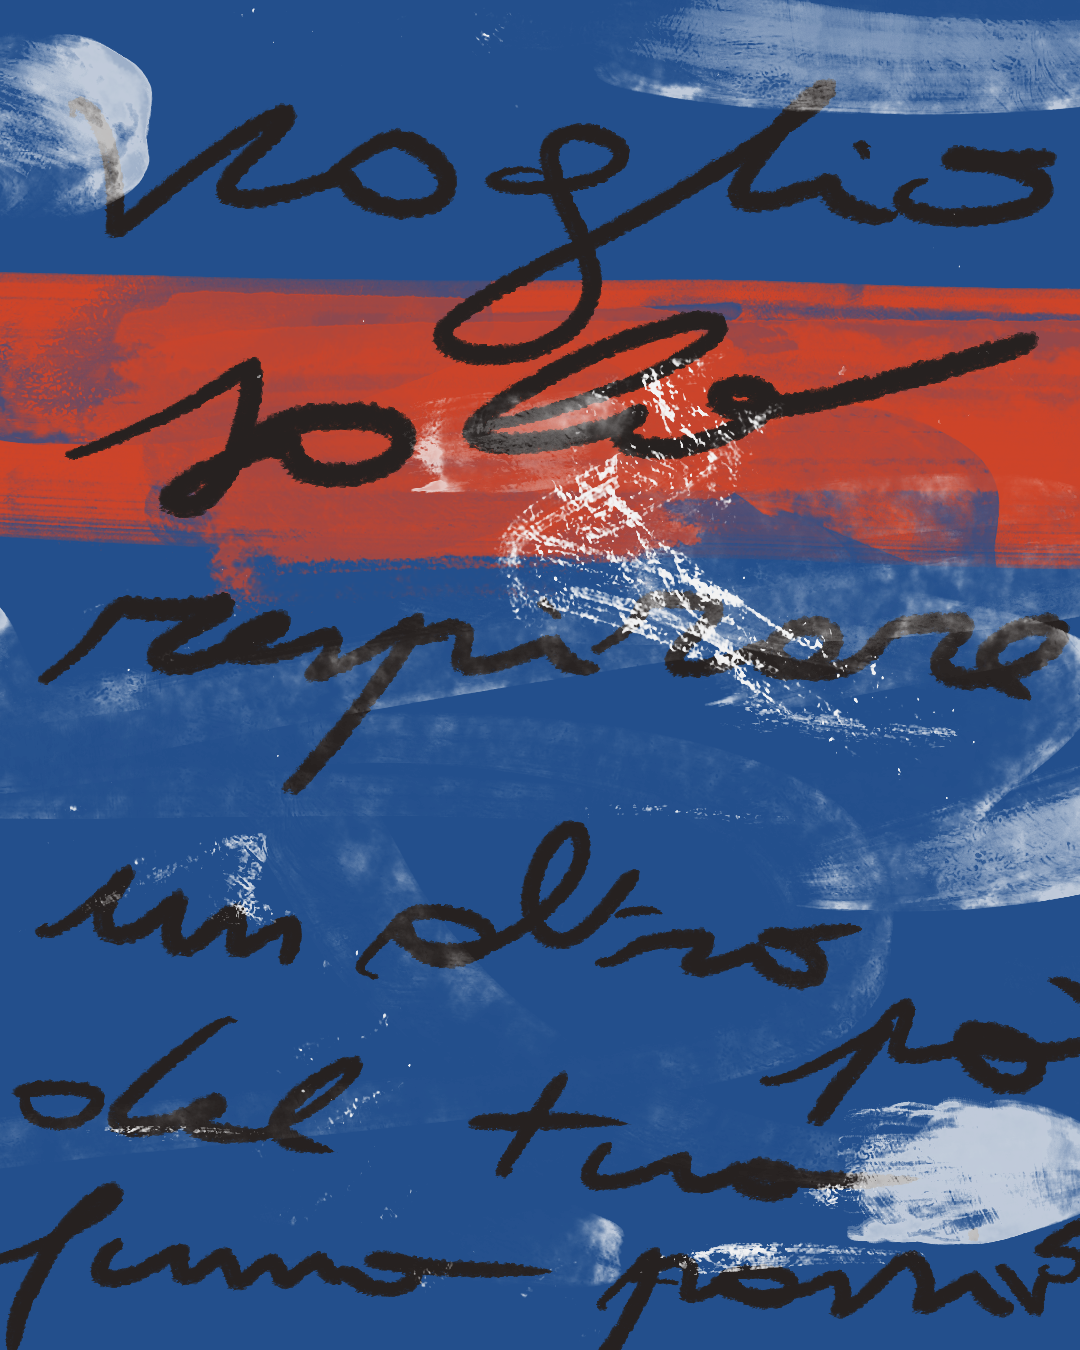 voglio
solo
respirare
un altro
pò
del tuo
fumo